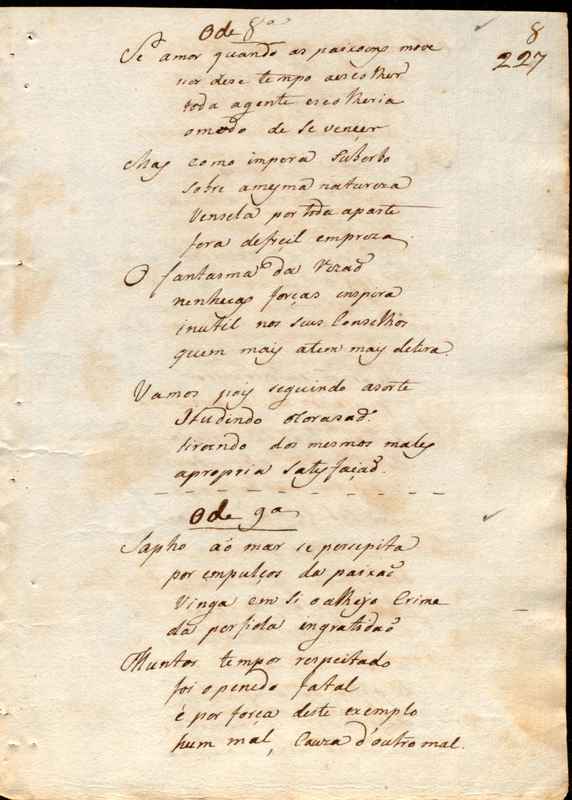 8
227
Ode 8ª
Se amor quando as paixoins move
nos dese tempo aescolher
toda agente escolheria
omodo de se vençer
Mas como impera suberbo
sobre amesma natureza
Vensela por toda aparte
fora defecil empreza.
O fantasma da Rezaõ
nenhuas forças inspira
inutil nos seus Conselhos
quem mais atem mais delira.
Vamos pois seguindo asorte
Iludindo oCorasaõ
tirando dos mesmos males
apropria satisfaçaõ.
Ode 9ª
Sapho aõ mar se persepita
por empulços da paixaõ
Vinga em si oalheyo Crime
da perfida engratidaõ
Muntos tempos respeitado
foi openedo fatal
é por força deste exemplo
hum mal, Cauza d'outro mal.